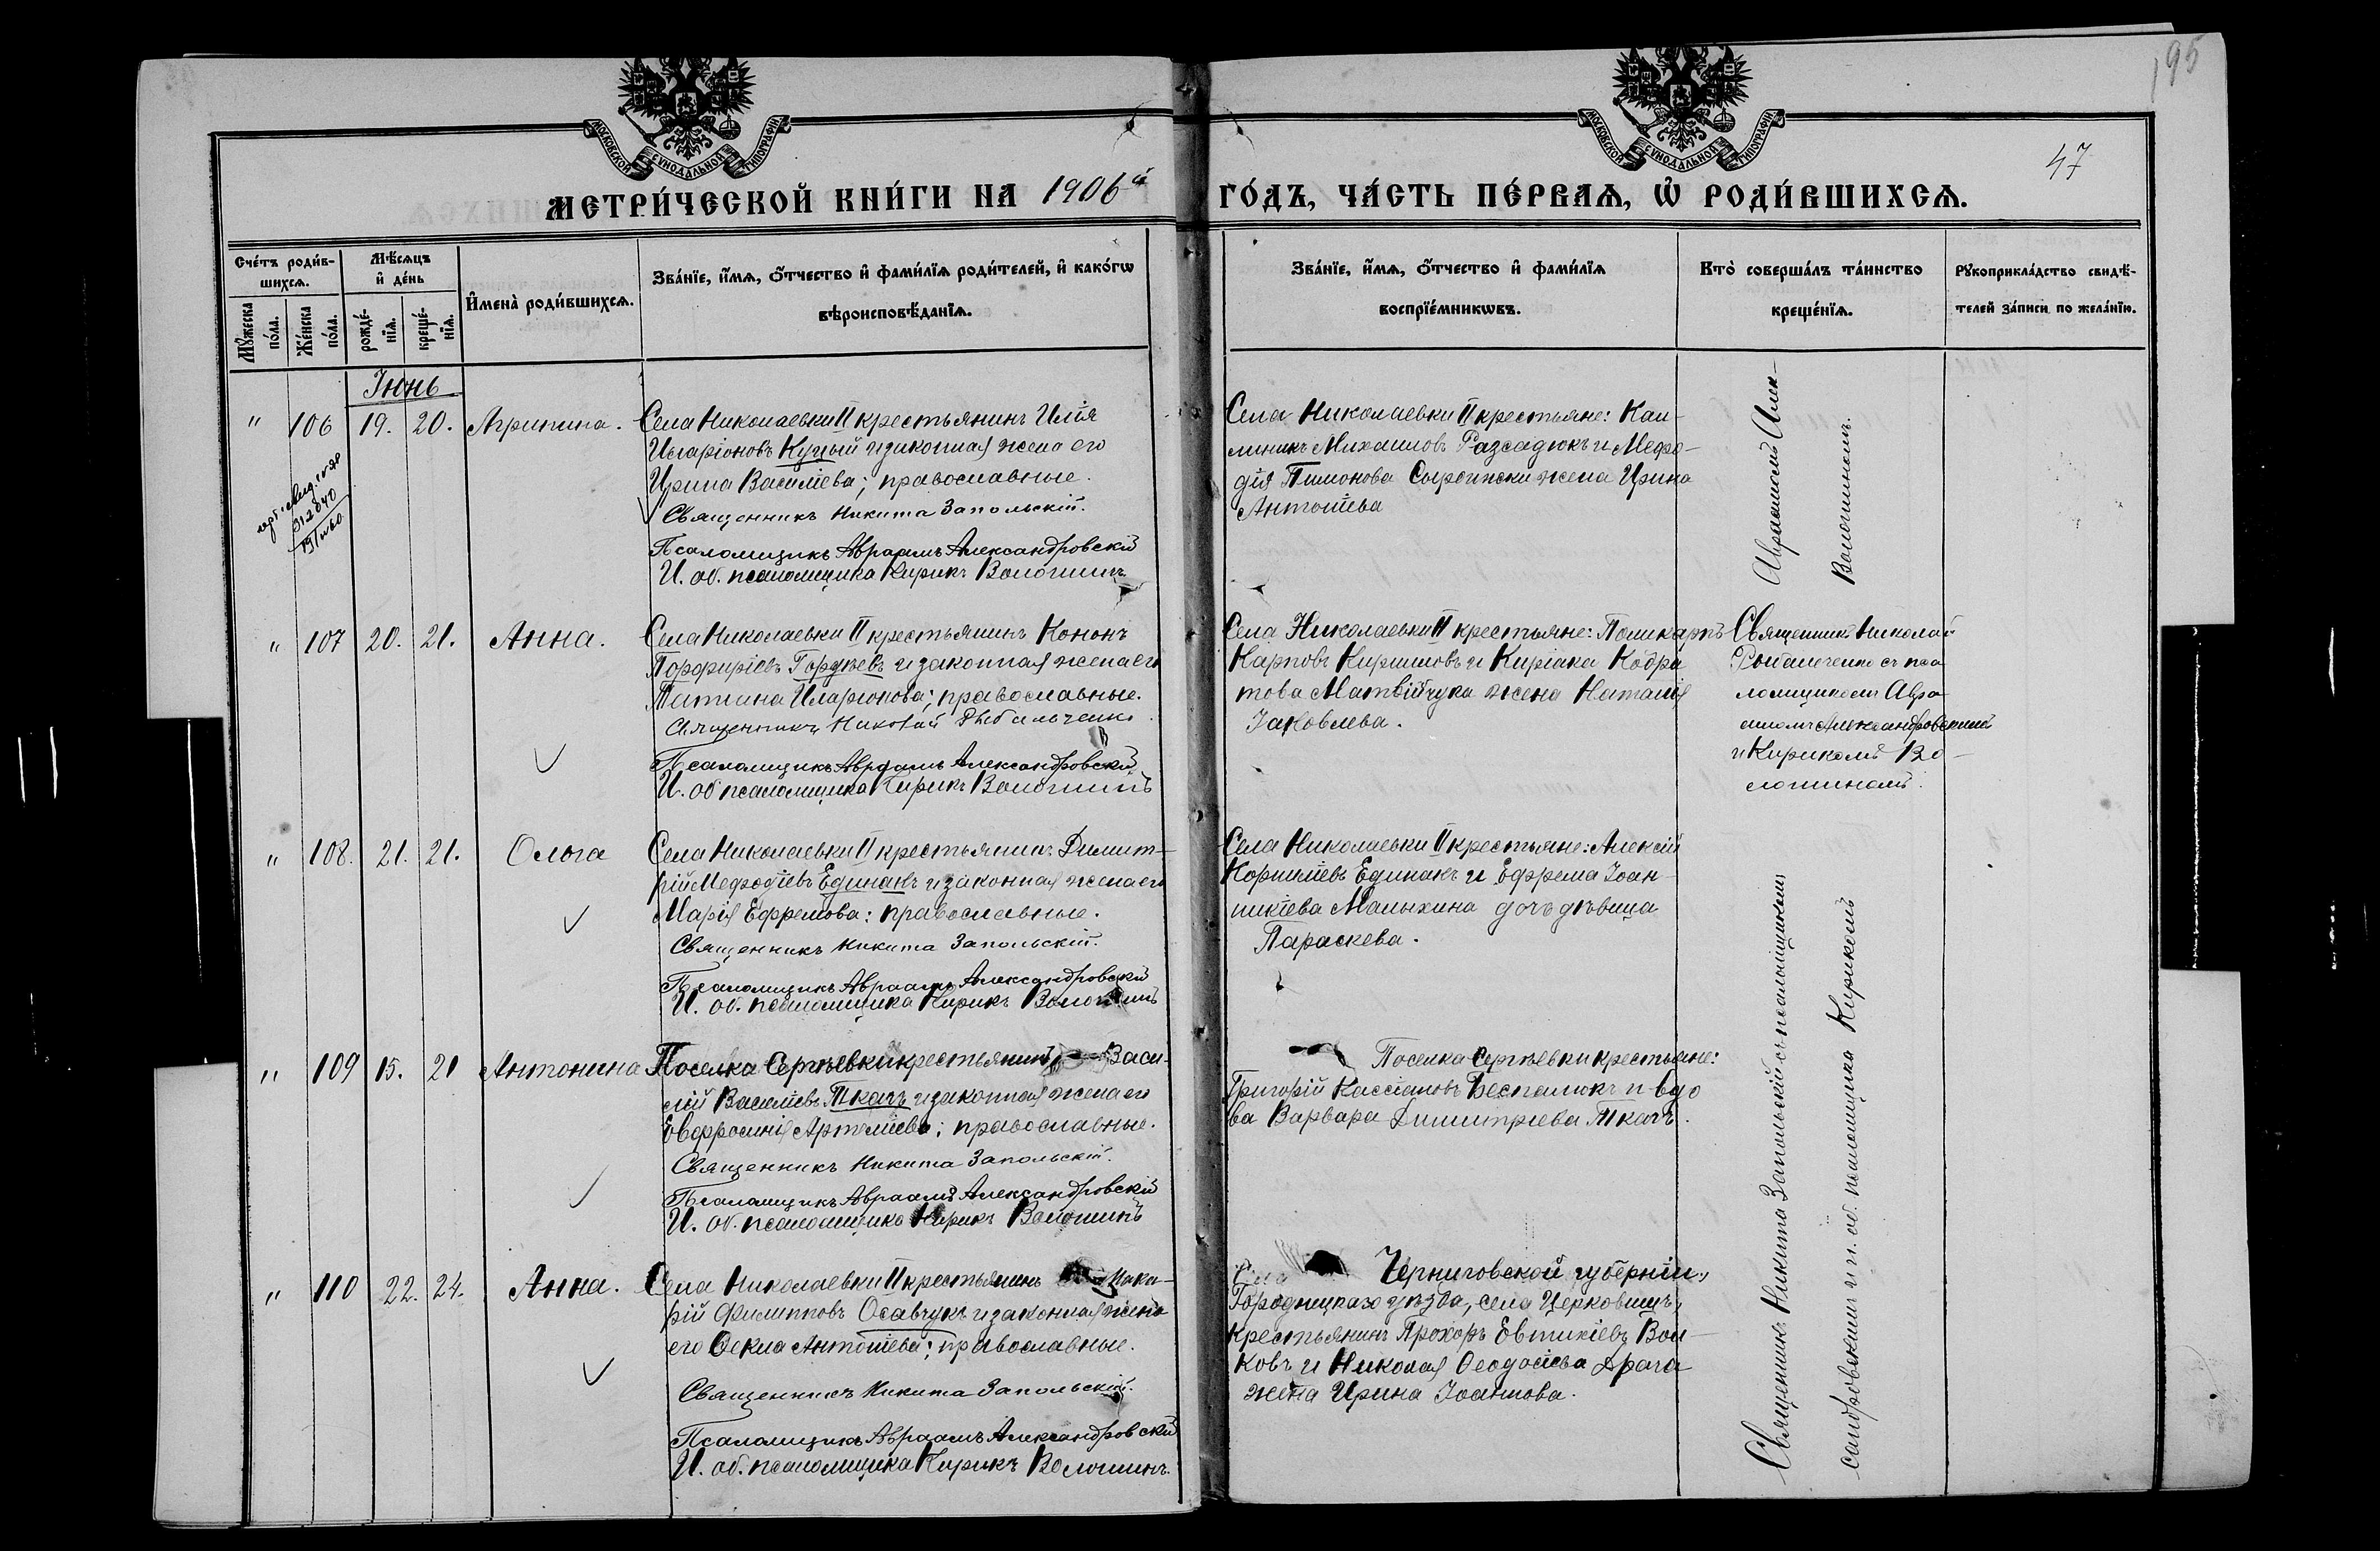 195
47
МОСКОВСКОЙ СѴНОДАЛЬНОЙ ТИПОГРАФІИ
МОСКОВСКОЙ СѴНОДАЛЬНОЙ ТИПОГРАФІИ
МЕТРИ́ЧЕСКОЙ КНИ́ГИ НА 1906й ГО́ДЪ, ЧА́СТЬ ПЕ́РВАѦ, Ѡ҆ РОДИ́ВШИХСѦ.
Сче́тъ роди́в-
шихсѧ.
Мꙋ́жеска по́ла.
Же́нска по́ла.
Мѣ́сѧцъ
и҆ де́нь
рожде́-
нїѧ.
креще́-
нїѧ.
И҆мена̀ роди́вшихсѧ.
Зва́нїе, и҆́мѧ, ѻ҆́тчество и҆ фами́лїѧ роди́телей, и҆ како́гѡ
вѣроисповѣ́данїѧ.
Зва́нїе, и҆́мѧ, ѻ҆́тчество и҆ фами́лїѧ
воспрїе́мникѡвъ.
Кто̀ соверша́лъ та́инство
креще́нїѧ.
Рꙋкоприкла́дство свидѣ́-
телей за́писи по жела́нїю.
Іюнь
" 106 19. 20. Агрипина.
Села Николаевки II крестьянинъ Илія
Иларіоновъ Куцый и законная жена его
Ирина Василіева; православные.
Священникъ Никита Запольскій.
Псаломщикъ Авраамъ Александровскій
И. об. псаломщика Кирикъ Волошинъ
312840
Села Николаевки II крестьяне: Кал-
линикъ Михаиловъ Разсадюкъ и Мефо-
дія Тимонова жена Ирина
Антоніева
" 107 20. 21. Анна.
Села Николаевки II крестьянинъ Кононъ
Порфиріевъ Гордѣевъ и законная жена его
Татіана Иларіонова; православные.
Священникъ Николай Рыбальченко
Псаломщикъ Авраамъ Александровскій
И. об псаломщика Кирикъ Волошинъ
Села Николаевки II крестьяне: Поликарпъ
Карповъ Кириловъ и Киріака Кодра
това Матвійчука жена Наталія
Іаковлева.
Священникъ Николай
Рыбальченко съ пса
ломщикомъ Авра
амомъ Александровскимъ
и Кирикомъ Во-
лошиномъ.
" 108. 21. 21. Ольга
Села Николаевки II крестьянинъ Димит-
рій Мефодіевъ Единакъ и законная жена его
Марія Ефремова: православные.
Священникъ Никита Запольскій.
Псаломщикъ Авраамъ Александровскій
И. об. псаломщика Кирикъ Волошинъ
Села Николаевки II крестьяне: Алексій
Корниліевъ Единакъ и Ефрема Іоан-
никіева Малыхина дочь дѣвица
Параскева.
" 109 15. 21 Антонина
Поселка Сергѣевки крестьянинъ Васи-
лій Василіевъ Ткачъ и законная жена его
Евфросинія Артеміева; православные.
Священникъ Никита Запольскій.
Псаломщикъ Авраамъ Александровскій
И. об. псаломщика Кирикъ Волошинъ
Поселка Сергѣевки крестьяне:
Григорій Кассіановъ Беспаликъ и вдо
ва Варвара Димитріева Ткачъ.
" 110 22. 24. Анна.
Села Николаевки II крестьянинъ Мака-
рій Филипповъ Осавчукъ и законная жена
его Ѳекла Антоніева; православные.
Священникъ Никита Запольскій.
Псаломщикъ Авраамъ Александровскій
И. об. псаломщика Кирикъ Волошинъ.
Черниговской губерніи,
Городницкаго уѣзда, села Церковищъ,
крестьянинъ Прохоръ Евтихіевъ Вол-
ковъ и Николая Ѳеодосіева Драга
жена Ирина Іоаннова.
Священникъ Никита Запольскій съ псаломщикомъ Авраамомъ Алек-
сандровскимъ и и. об. псаломщика Кирикомъ Волошиномъ.